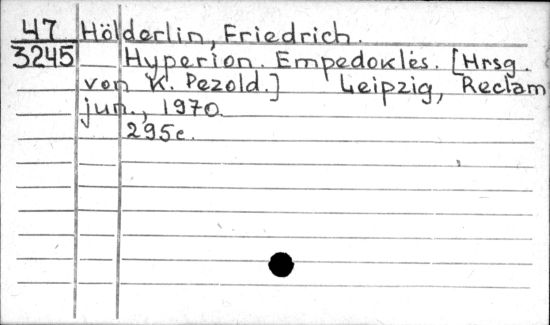 47 Hölderlin, Friedrich.
3245 Hyperion. Empedoklės. [Hrsg.
von K. Pezold.] Leipzig, Reclam
jun., 1970.
295c.